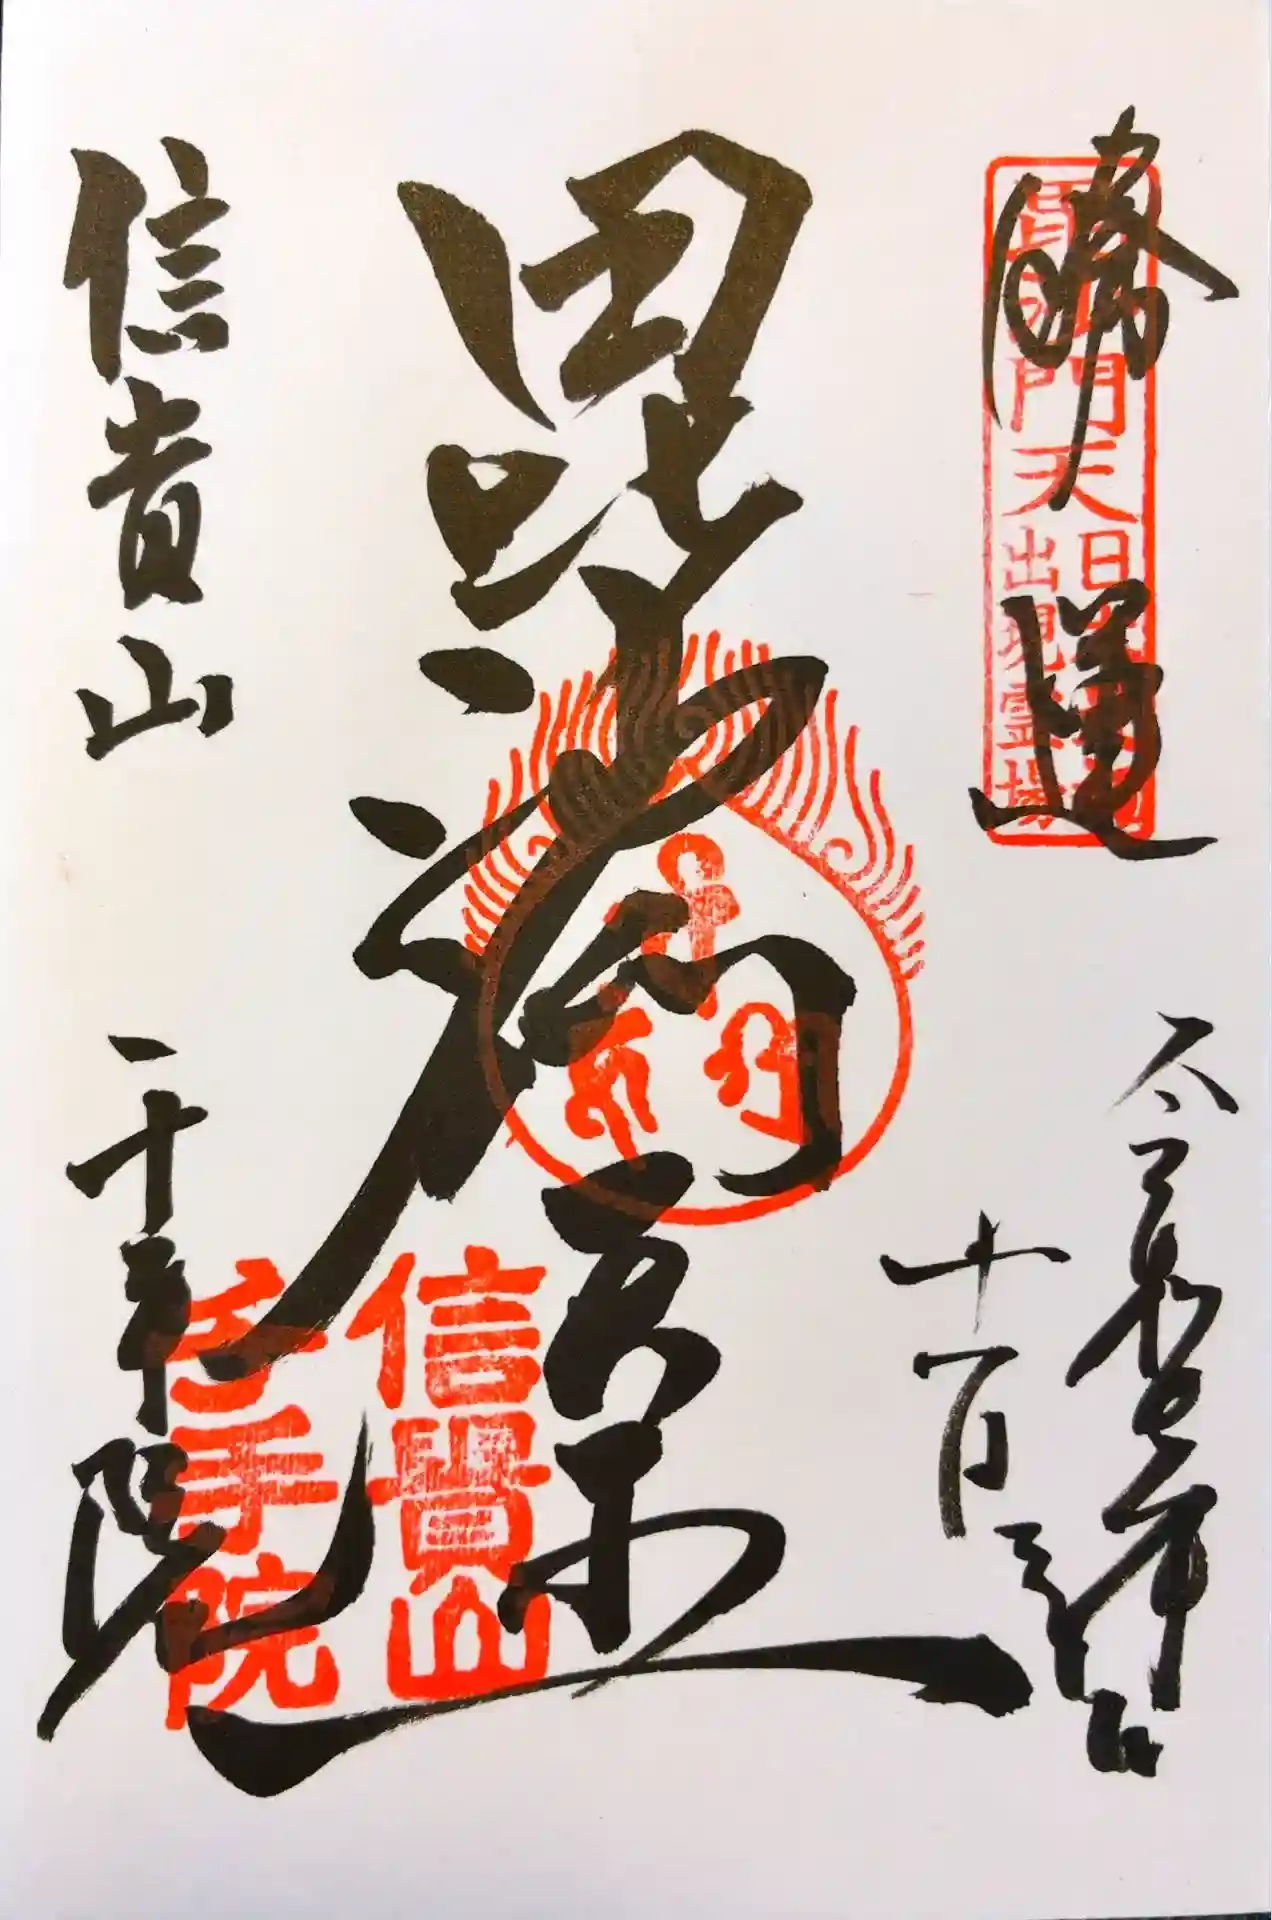 勝運
毘沙門天
日本最初
出現霊場
十一月
毘沙門天王
信貴山
千手院
信貴山
千手院